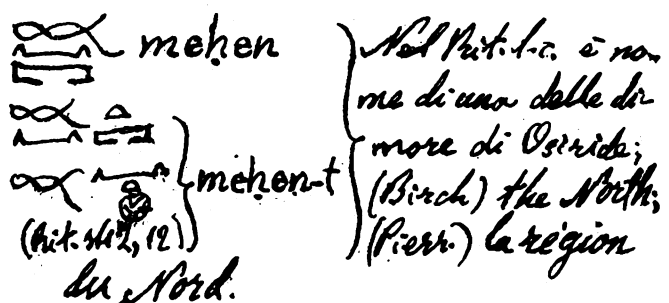 meḥen
meḥen-t
(Rit. 142, 12)
Nel Rit. l. c. è no-
me di una delle di-
more di Osiride;
(Birch) the North;
(Pierr.) la région
du Nord.